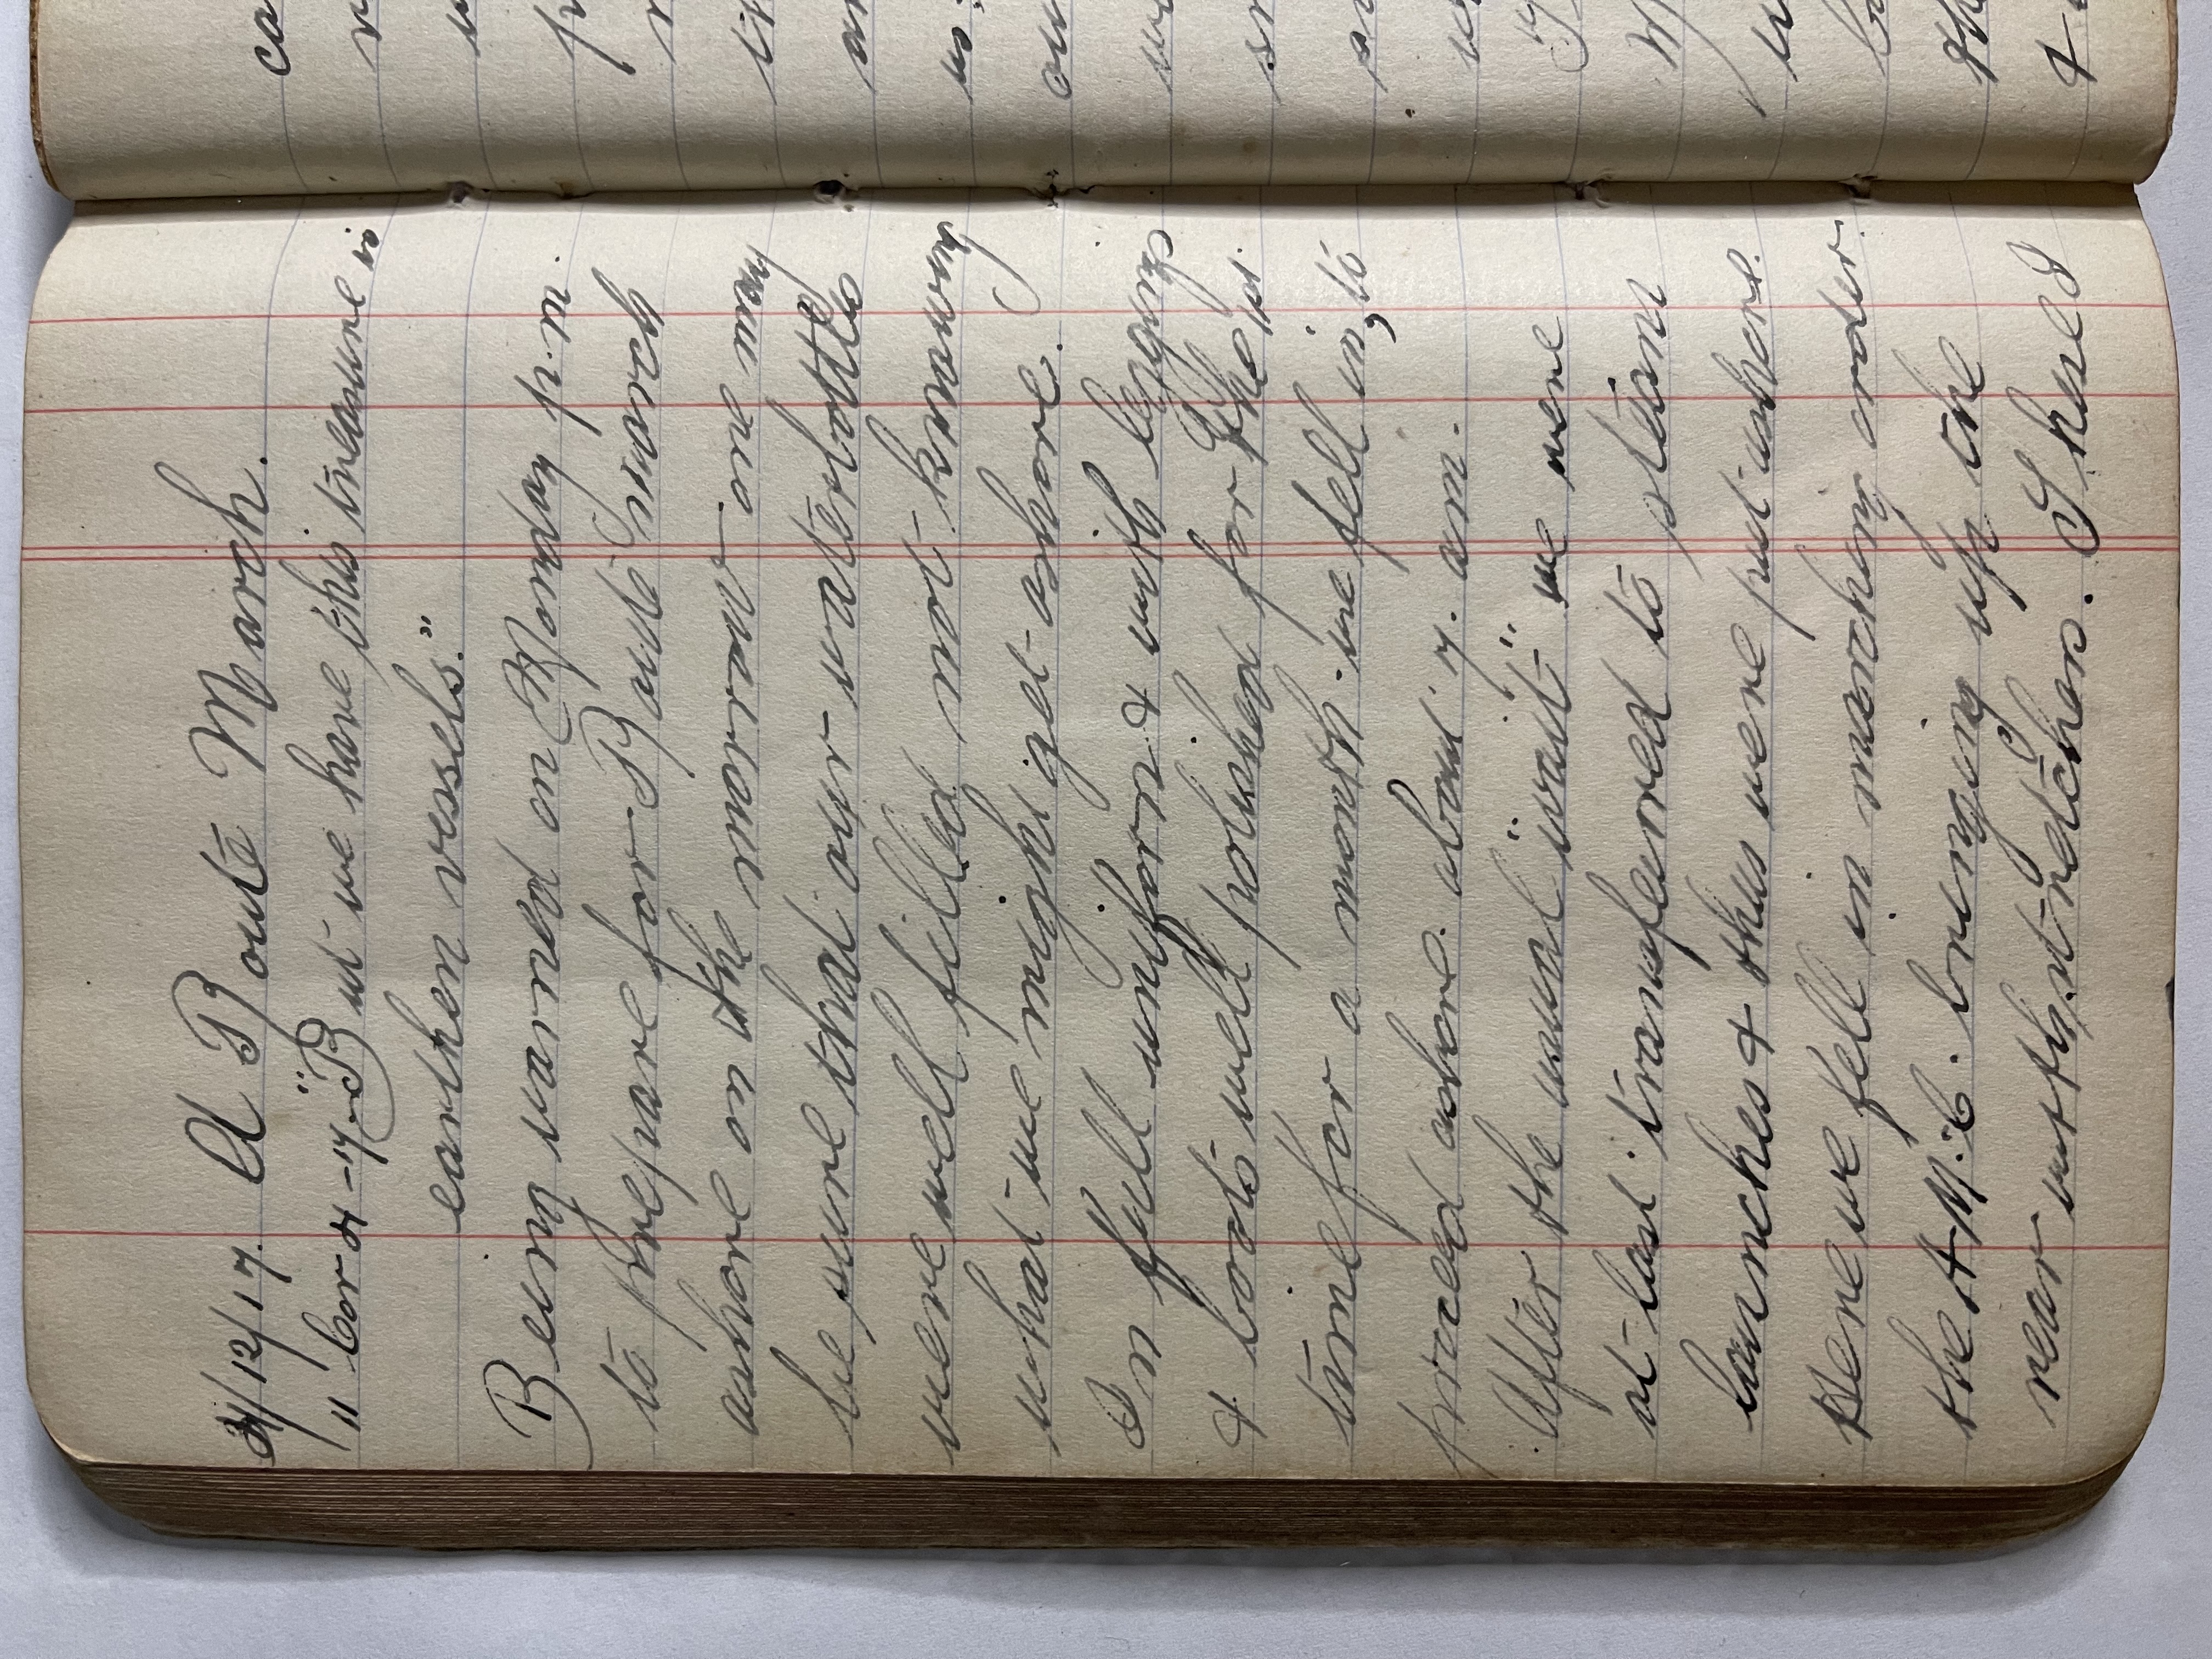 31/12/17. A Route March.
"II Cor 4-7. "But we have this treasure in
earthen vessels."
Being warned on Monday p.m.
to prepare for Route march
ashore on the morrow and
be sure that our waterbottles
were well filled not knowing
what we might get ashore.
In full uniform & with leggings
& boots well polished for the 1st
time for a month. we fell in, to
proceed ashore about 7. am.
After the usual "wait" we were
at last transfeured to steam
launches & thus were put ashore.
Here we fell in marching order
the A.M.C. bringing up the
rear with stretchers. I heard